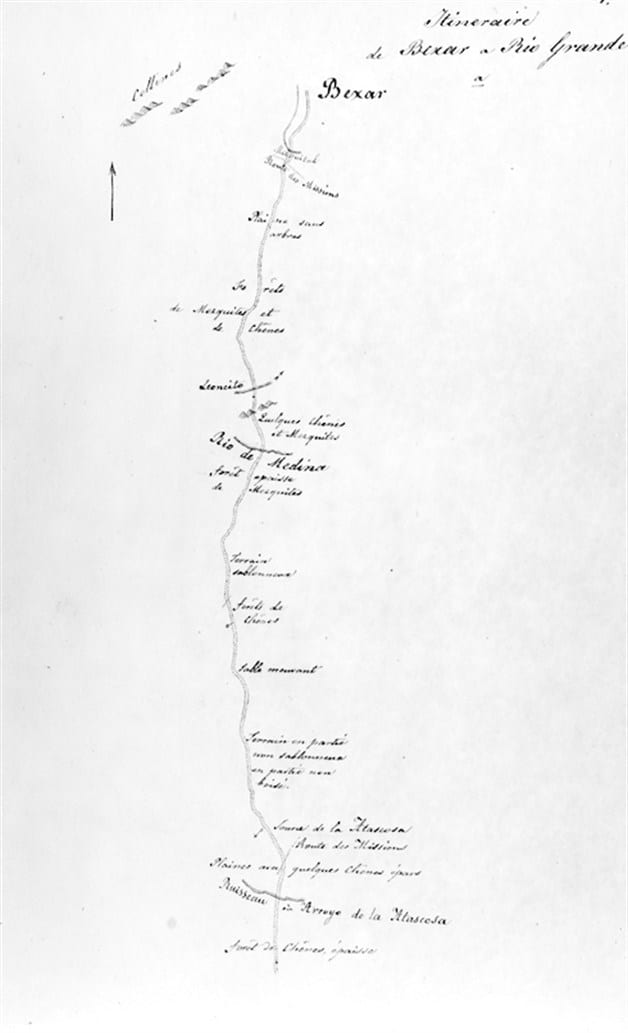 Itineraire
de Bexar a Rio Grande
a
Collines
Bexar
Route des Missions
Plaine sans
arbres
Forêts
de Mezquites et
de Chênes
Leoncito
Quelques Chênes
et Mezquites
Rio de Medina
Forêt epaisse
de Mezquites
Terrain
sablonneux
Forêts de
Chênes
Sable mouvant
Terrain en partie
non sablonneux
en partie non
boisé.
Source de la Atascosa
Route des Missions
Plaines avec quelques Chênes épars
Ruisseau ou Arroyo de la Atascosa
Forêt de Chênes, épaisse